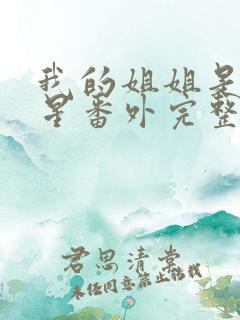 我的姐姐是
星番外完整
君思清
未经同意禁止转载